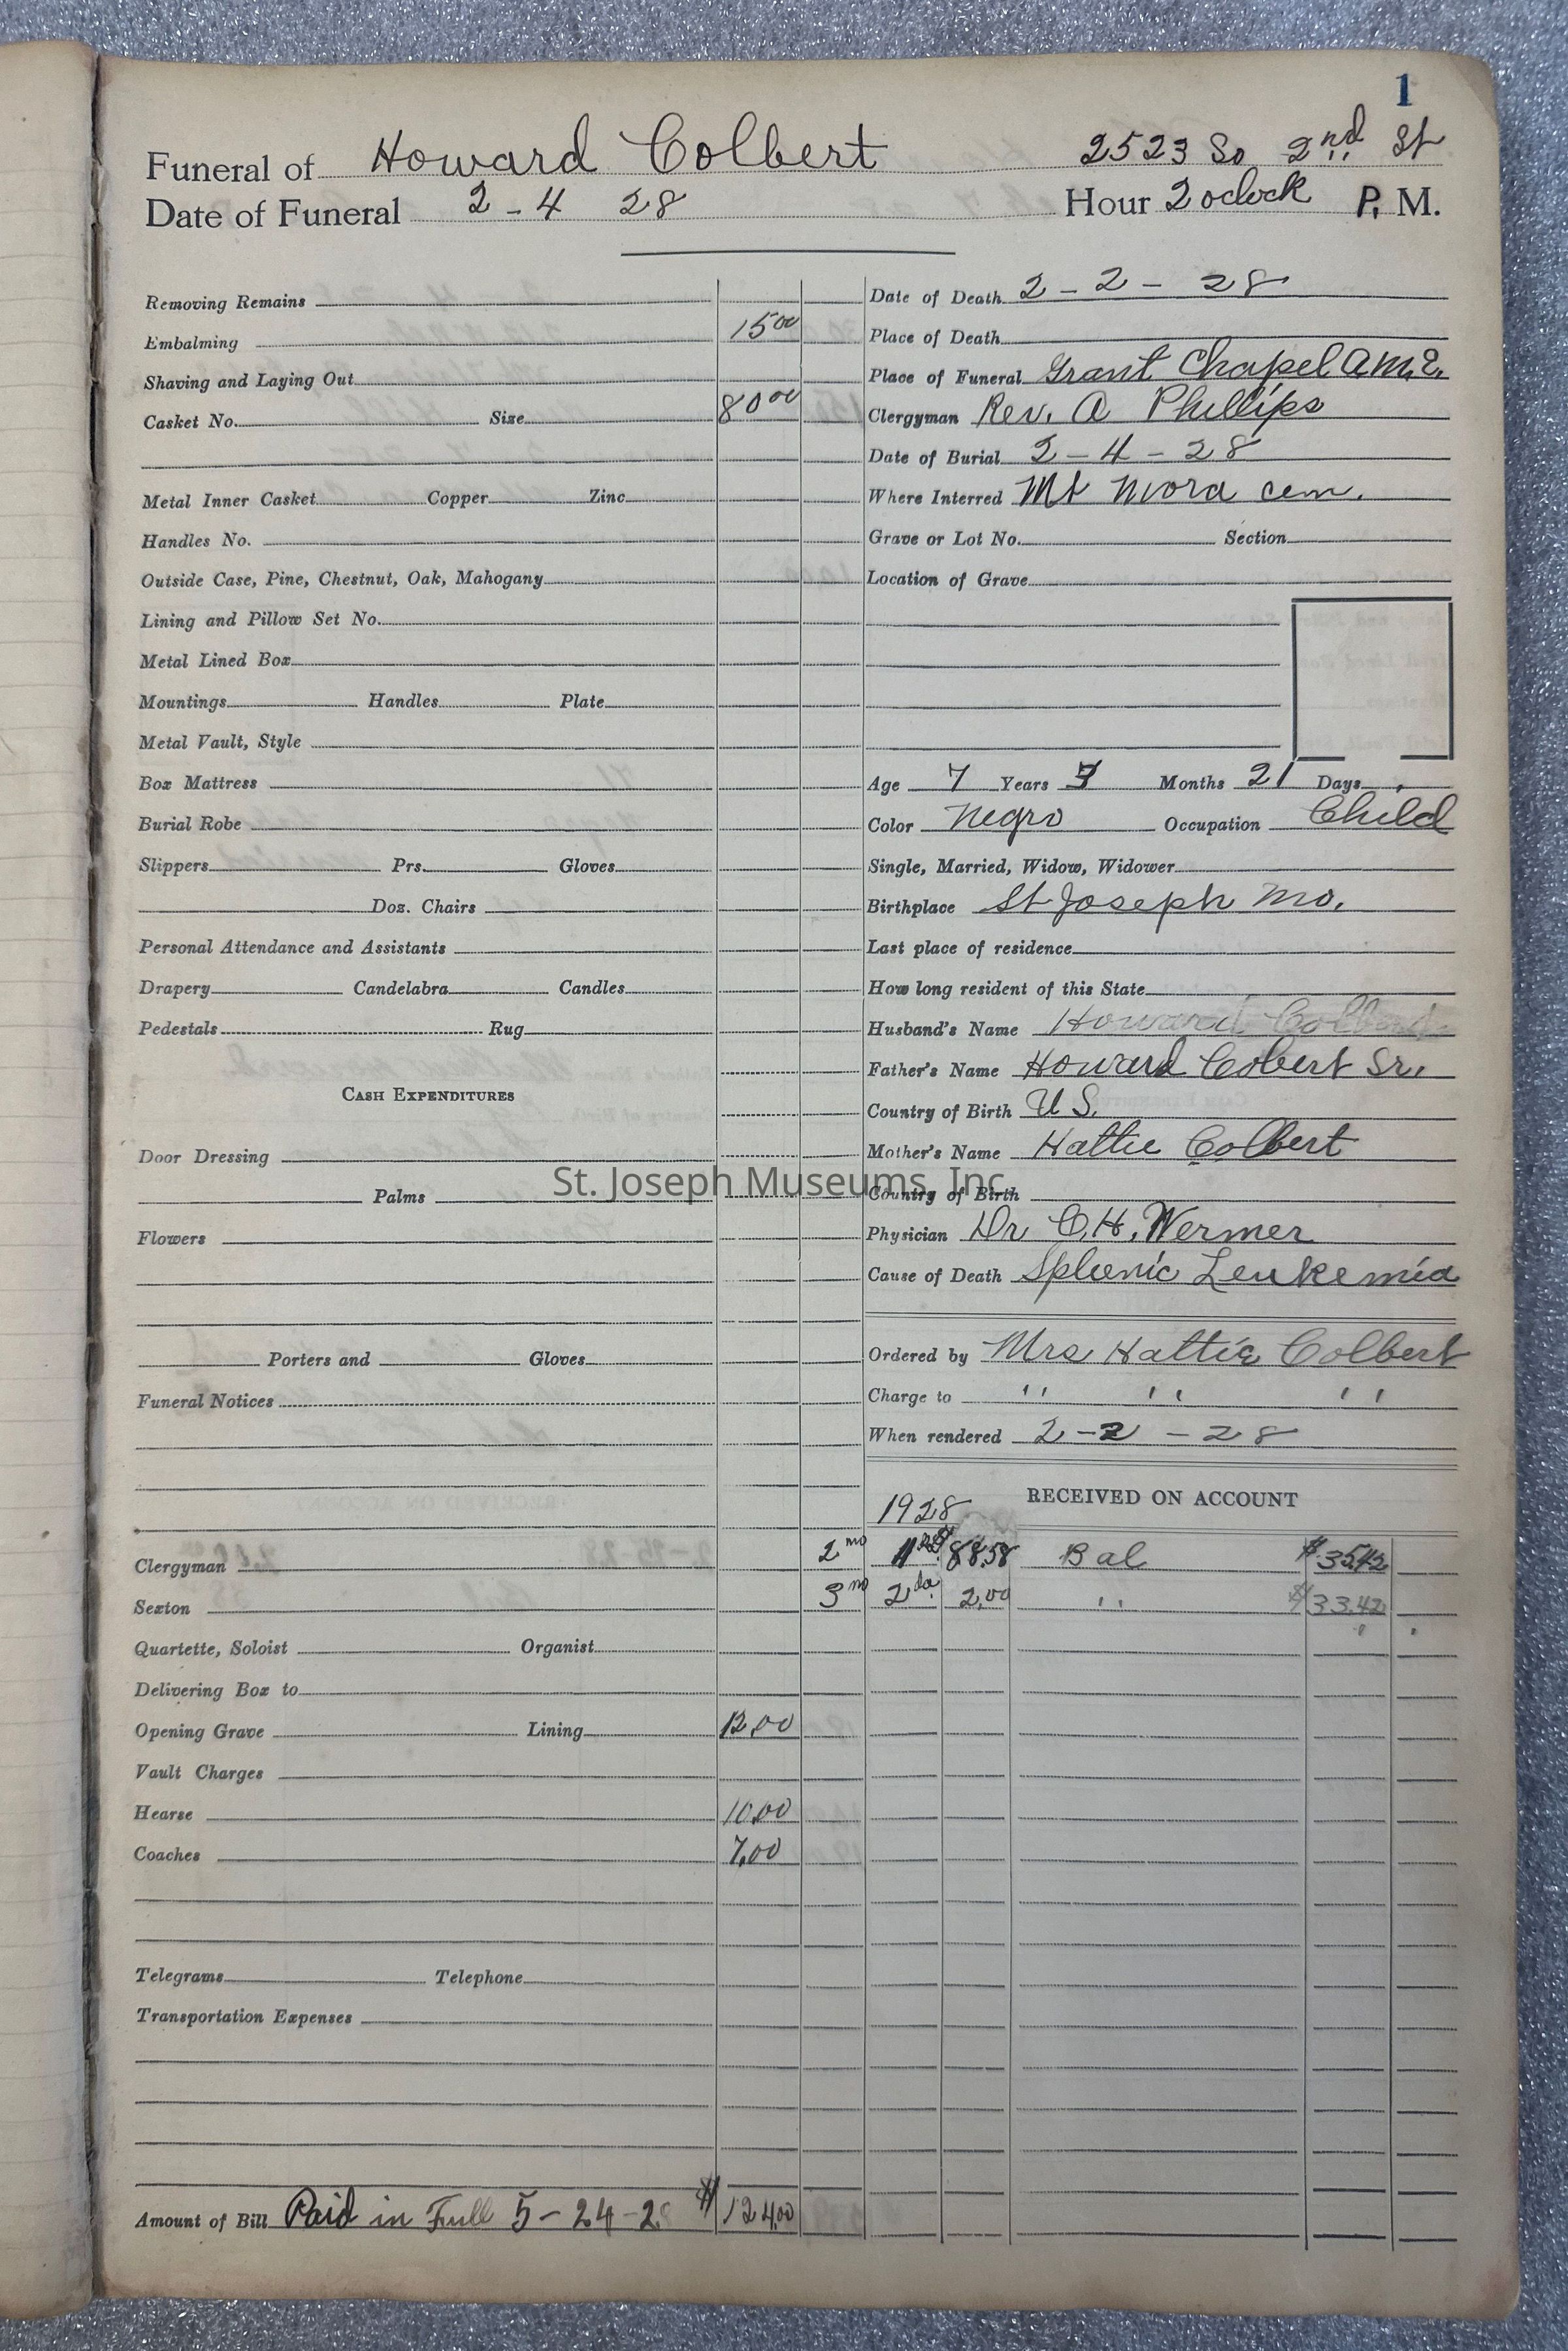 1
Funeral of Howard Colbert 2523 So 2nd St
Date of Funeral 2-4 28 Hour 2 oclock P. M.
Removing Remains
Embalming 15 00
Shaving and Laying Out
Casket No. Size 80 00
Metal Inner Casket Copper Zinc
Handles No.
Outside Case, Pine, Chestnut, Oak, Mahogany
Lining and Pillow Set No.
Metal Lined Box
Mountings Handles Plate
Metal Vault, Style
Box Mattress
Burial Robe
Slippers Prs. Gloves
Doz. Chairs
Personal Attendance and Assistants
Drapery Candelabra Candles
Pedestals Rug
CASH EXPENDITURES
Door Dressing
Palms
Flowers
Porters and Gloves
Funeral Notices
Clergyman
Sexton
Quartette, Soloist Organist
Delivering Box to
Opening Grave Lining 12.00
Vault Charges
Hearse 10.00
Coaches 7.00
Telegrams Telephone
Transportation Expenses
Amount of Bill Paid in Full 5-24-28 $124.00
Date of Death 2-2-28
Place of Death
Place of Funeral Grant Chapel A.M.E.
Clergyman Rev. A Phillips
Date of Burial 2-4-28
Where Interred Mt Mora cem.
Grave or Lot No. Section
Location of Grave
Age 7 Years Months 21 Days
Color Negro Occupation Child
Single, Married, Widow, Widower
Birthplace St Joseph Mo.
Last place of residence
How long resident of this State
Husband's Name Howard Colbert
Father's Name Howard Colbert Sr.
Country of Birth U S.
Mother's Name Hattie Colbert
Country of Birth
Physician Dr C.H. Wermer
Cause of Death Spleenic Leukemia
Ordered by Mrs Hattie Colbert
Charge to " " "
When rendered 2-2-28
1928 RECEIVED ON ACCOUNT
2 mo 88.58 Bal $35.42
3 mo 2 da 2.00 " $33.42
St. Joseph Museums, Inc.